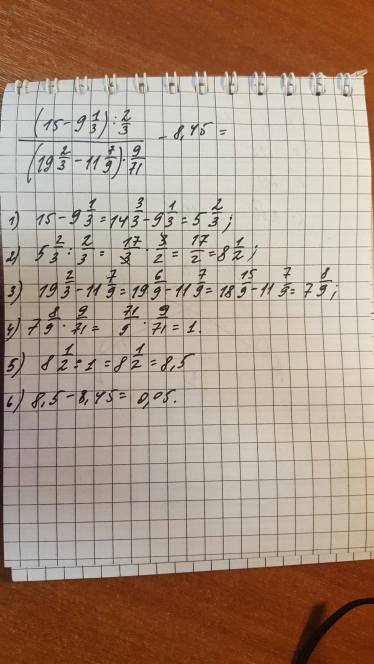 (15 - 9 1/3) : 2/3
(19 2/3 - 11 7/9) · 9/71 - 8,45 =
1) 15 - 9 1/3 = 14 3/3 - 9 1/3 = 5 2/3;
2) 5 2/3 : 2/3 = 17/3 · 3/2 = 17/2 = 8 1/2;
3) 19 2/3 - 11 7/9 = 19 6/9 - 11 7/9 = 18 15/9 - 11 7/9 = 7 8/9;
4) 7 8/9 · 9/71 = 71/9 · 9/71 = 1.
5) 8 1/2 : 1 = 8 1/2 = 8,5
6) 8,5 - 8,45 = 0,05.